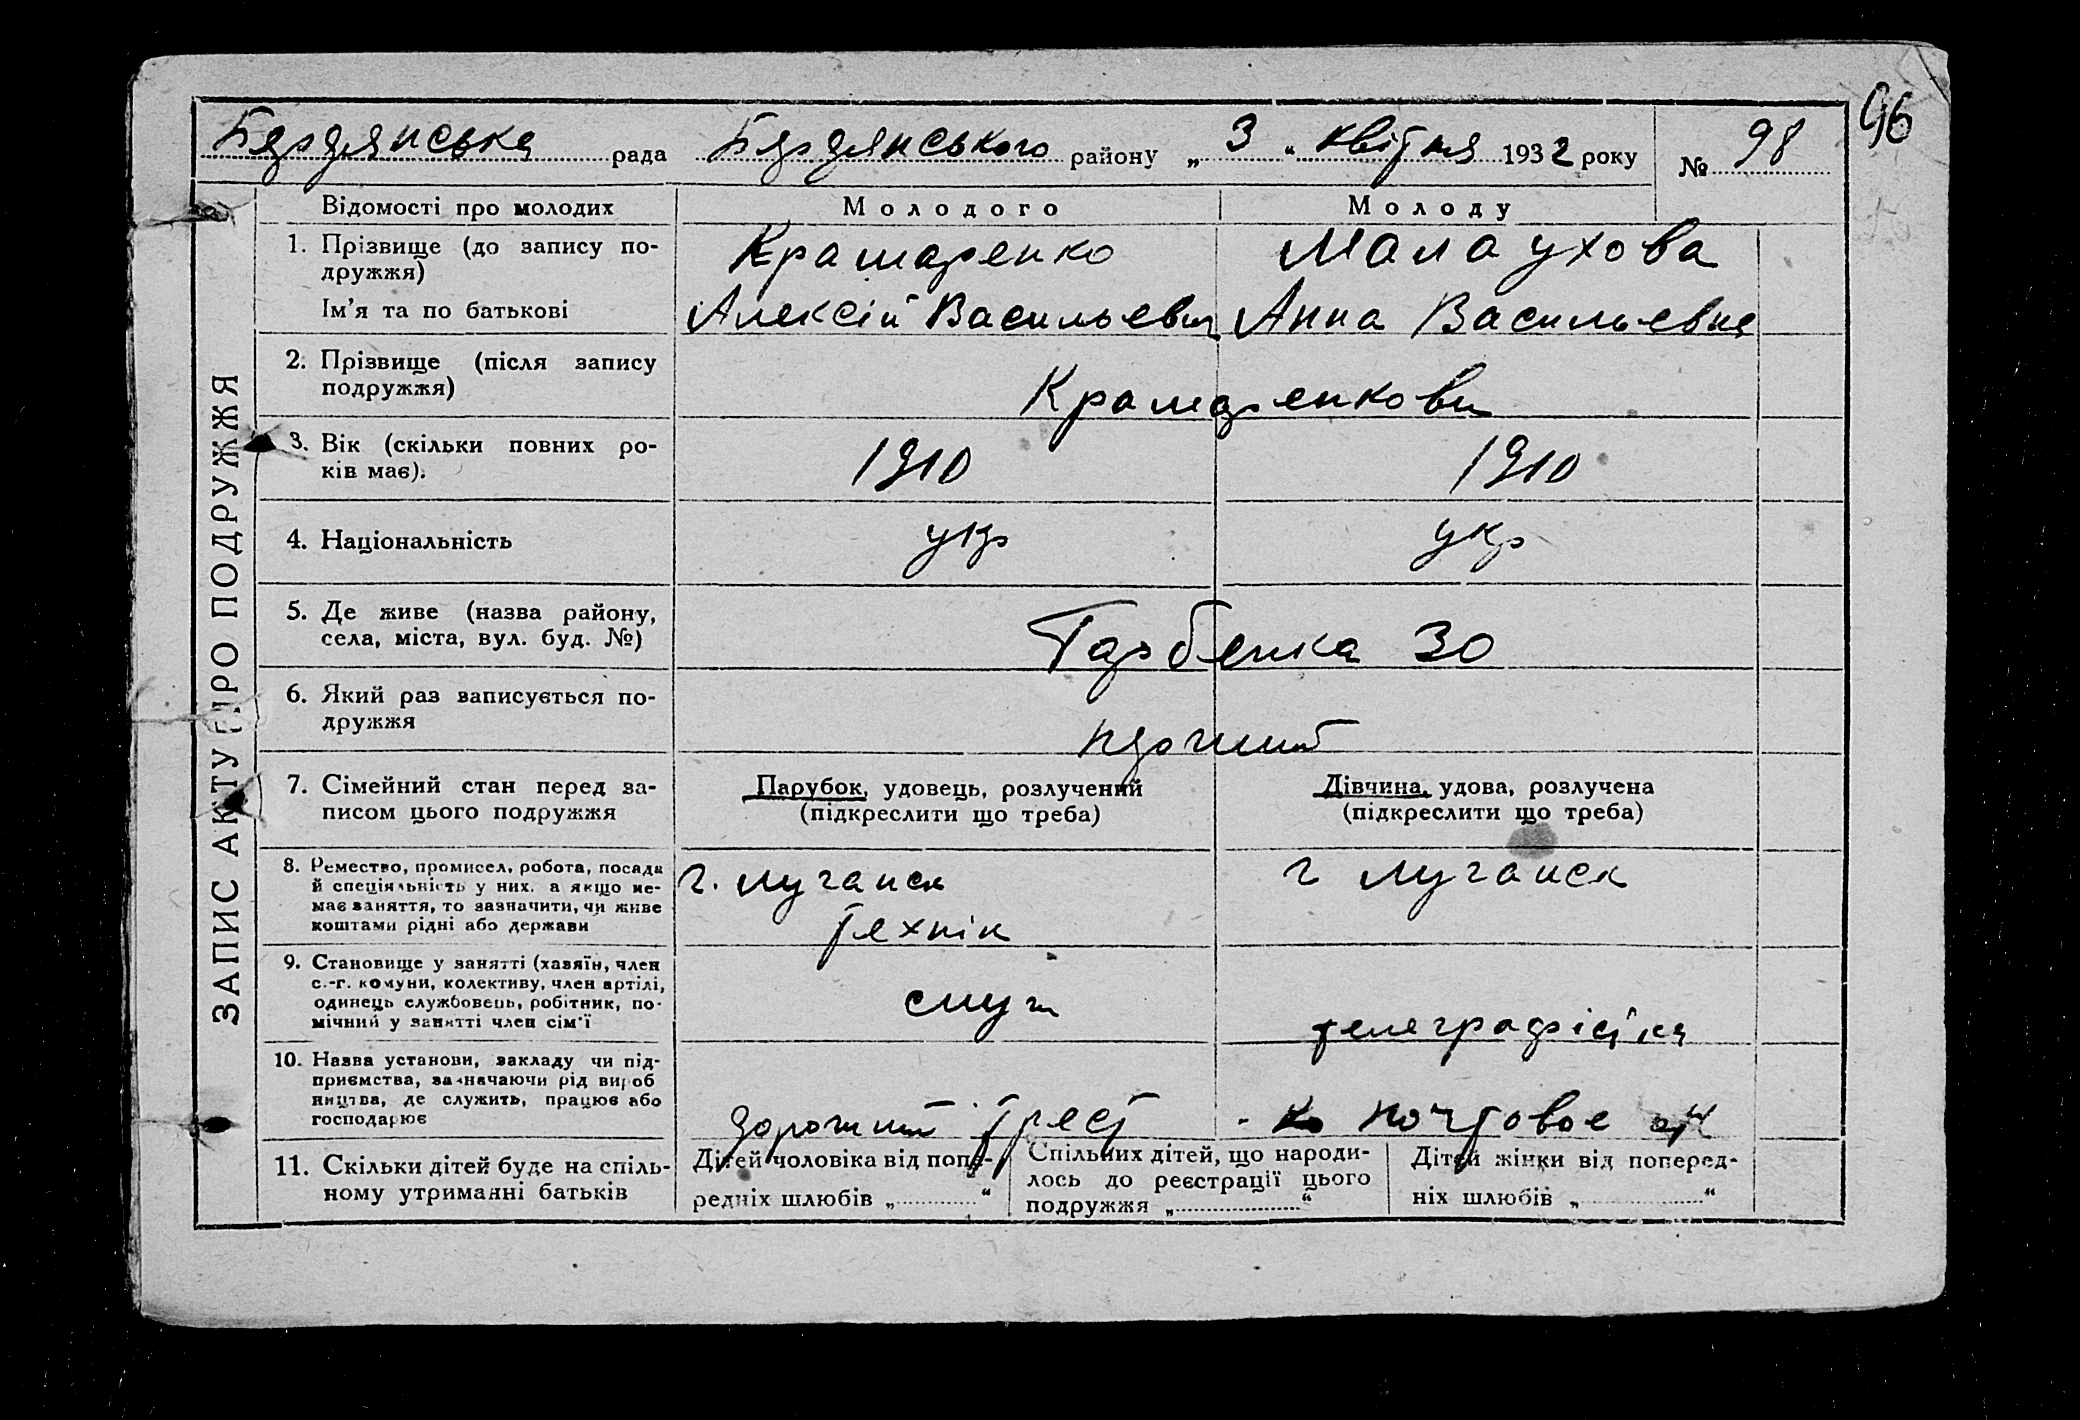 96
Бердянська рада Бердянського району „ 3 “ квітня 1932 року № 98
ЗАПИС АКТУ ПРО ПОДРУЖЖЯ
Відомості про молодих Молодого Молоду
1. Прізвище (до запису по-
дружжя) Крамаренко Малаухова
Ім’я та по батькові Алексій Васильевич Анна Васильевна
2. Прізвище (після запису
подружжя) Крамаренкови
3. Вік (скільки повних ро-
ків має). 1910 1910
4. Національність укр укр
5. Де живе (назва району,
села, міста, вул. буд. №) 30
6. Який раз записується по-
дружжя
7. Сімейний стан перед за-
писом цього подружжя
Парубок, удовець, розлучений
(підкреслити що треба)
Дівчина, удова, розлучена
(підкреслити що треба)
8. Ремество, промисел, робота, посада
й спеціяльність у них, а якщо не-
має заняття, то зазначити, чи живе
коштами рідні або держави
г. Луганск
технік
г Луганск
9. Становище у занятті (хазяїн, член
с.-г. комуни, колективу, член артілі,
одинець службовець, робітник, по-
мічний у занятті член сім’ї
служ
телеграфістка
10. Назва установи, закладу чи під-
приємства, зазначаючи рід вироб
ництва, де служить, працює або
господарює
дорожний трест
почтовое
11. Скільки дітей буде на спіль-
ному утриманні батьків
Дітей чоловіка від попе-
редніх шлюбів „ “
Спільних дітей, що народи-
лось до реєстрації цього
подружжя „ “
Дітей жінки від поперед-
ніх шлюбів „ “